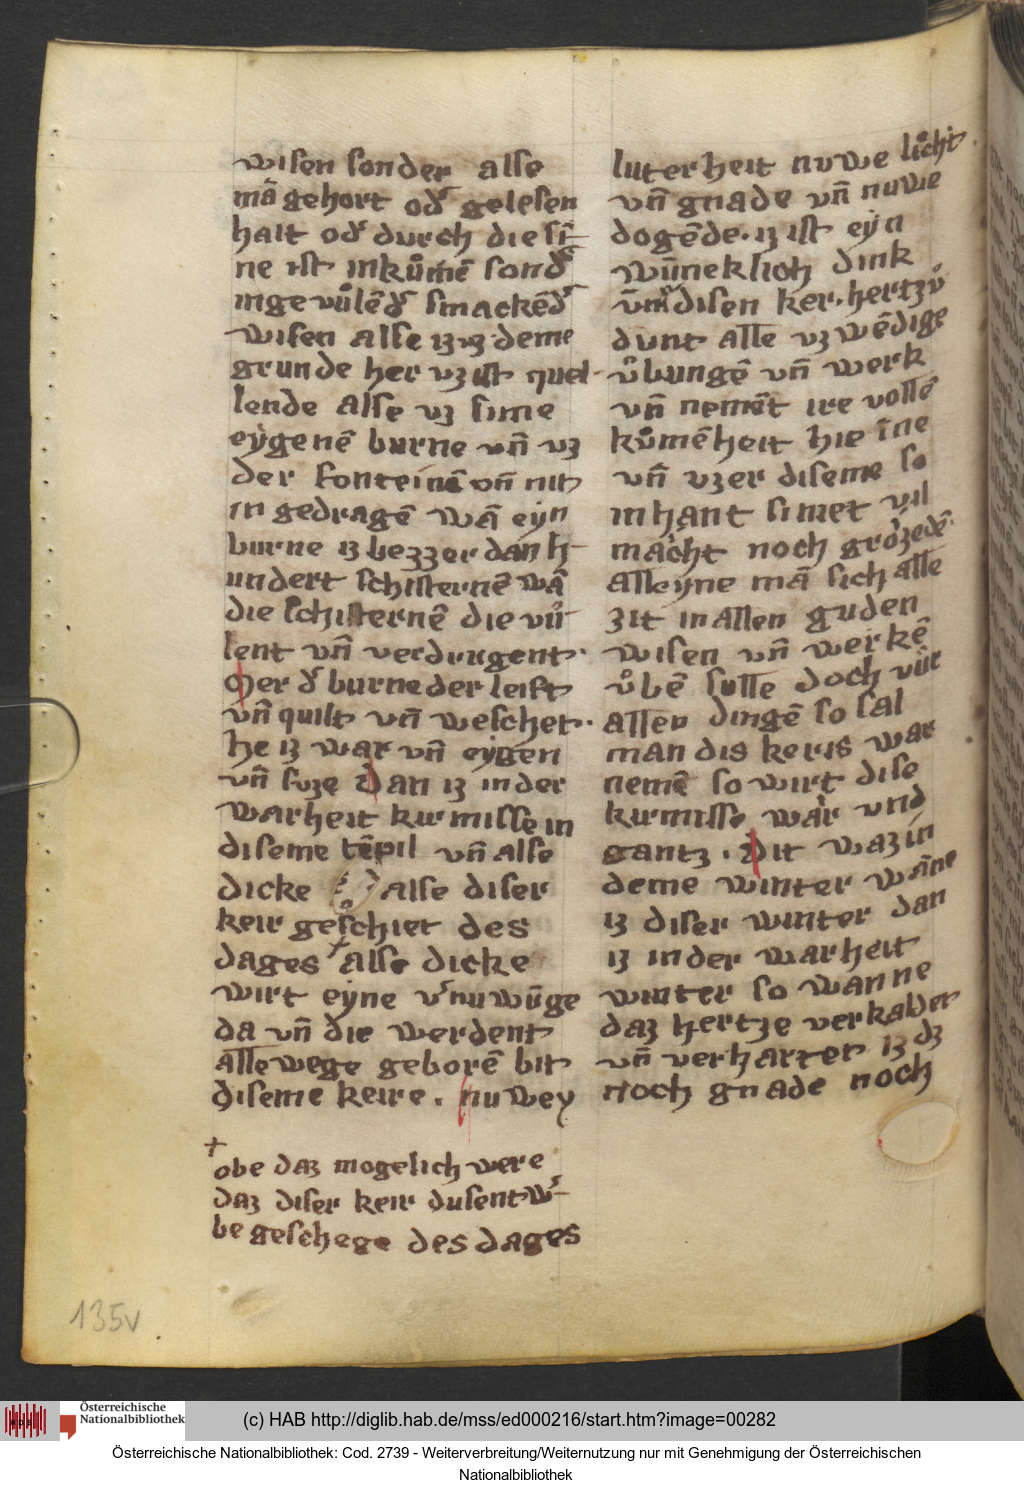 wisen sonder alse
mā gehort od᷒ gelesen
hait od᷒ durch die si̅
ne ist in kůmē sond᷒
ingevůlēd᷒ smackēd᷒
wisen alse iz vz deme
grunde her vz ist quel
lende alse vz sime
eygenē burne vn̄ vz
der fonteinē vn̄ nit
in gedragē wā eyn
burne iz bezzer dan h
undert schisternē wā
die schisternē die vů
lent vn̄ verdrugent·
Mer d᷒ burne der leift
vn̄ quilt vn̄ weschet·
he iz war vn̄ eygen
vn̄ suze dan iz in der
warheit kurmisse in
diseme tēpil vn̄ alse
dicke alse diser
keir geschiet des
dages + alse dicke
wirt eyne v᷒nuwūge
da vn̄ die werdent
alle wege geborē bit
diseme keire. nuwey
+
obe daz mogelich were
daz diser keir dusent w᷒
be geschege des dages
luterheit nuwe licht·
vn̄ gnade vn̄ nuwe
dogēde· iz ist eyn
wūneklich dink
vm̄ disen ker· hertzů
dunt alle vz wēdige
ůbungē vn̄ werk
vn̄ nemēt ire volle
kůmēheit hie īne
vn̄ vzer diseme so
in hant si met vil
macht noch grozedē·
alleyne mā sich alle
zit in allen guden
wisen vn̄ werkē
ůbē sulle doch vůr
allen dingē so sal
man dis keris war
nemē so wirt dise
kurmisse war vnd
gantz· Dit waz in
deme winter wāne
iz diser winter dan
iz in der warheit
winter so wanne
daz hertze verkaldet
vn̄ verhartet iz dz
noch gnade noch
135v
Österreichische
Nationalbibliothek
(c) HAB http://diglib.hab.de/mss/ed000216/start.htm?image=00282
Österreichische Nationalbibliothek: Cod. 2739 - Weiterverbreitung/Weiternutzung nur mit Genehmigung der Österreichischen
Nationalbibliothek